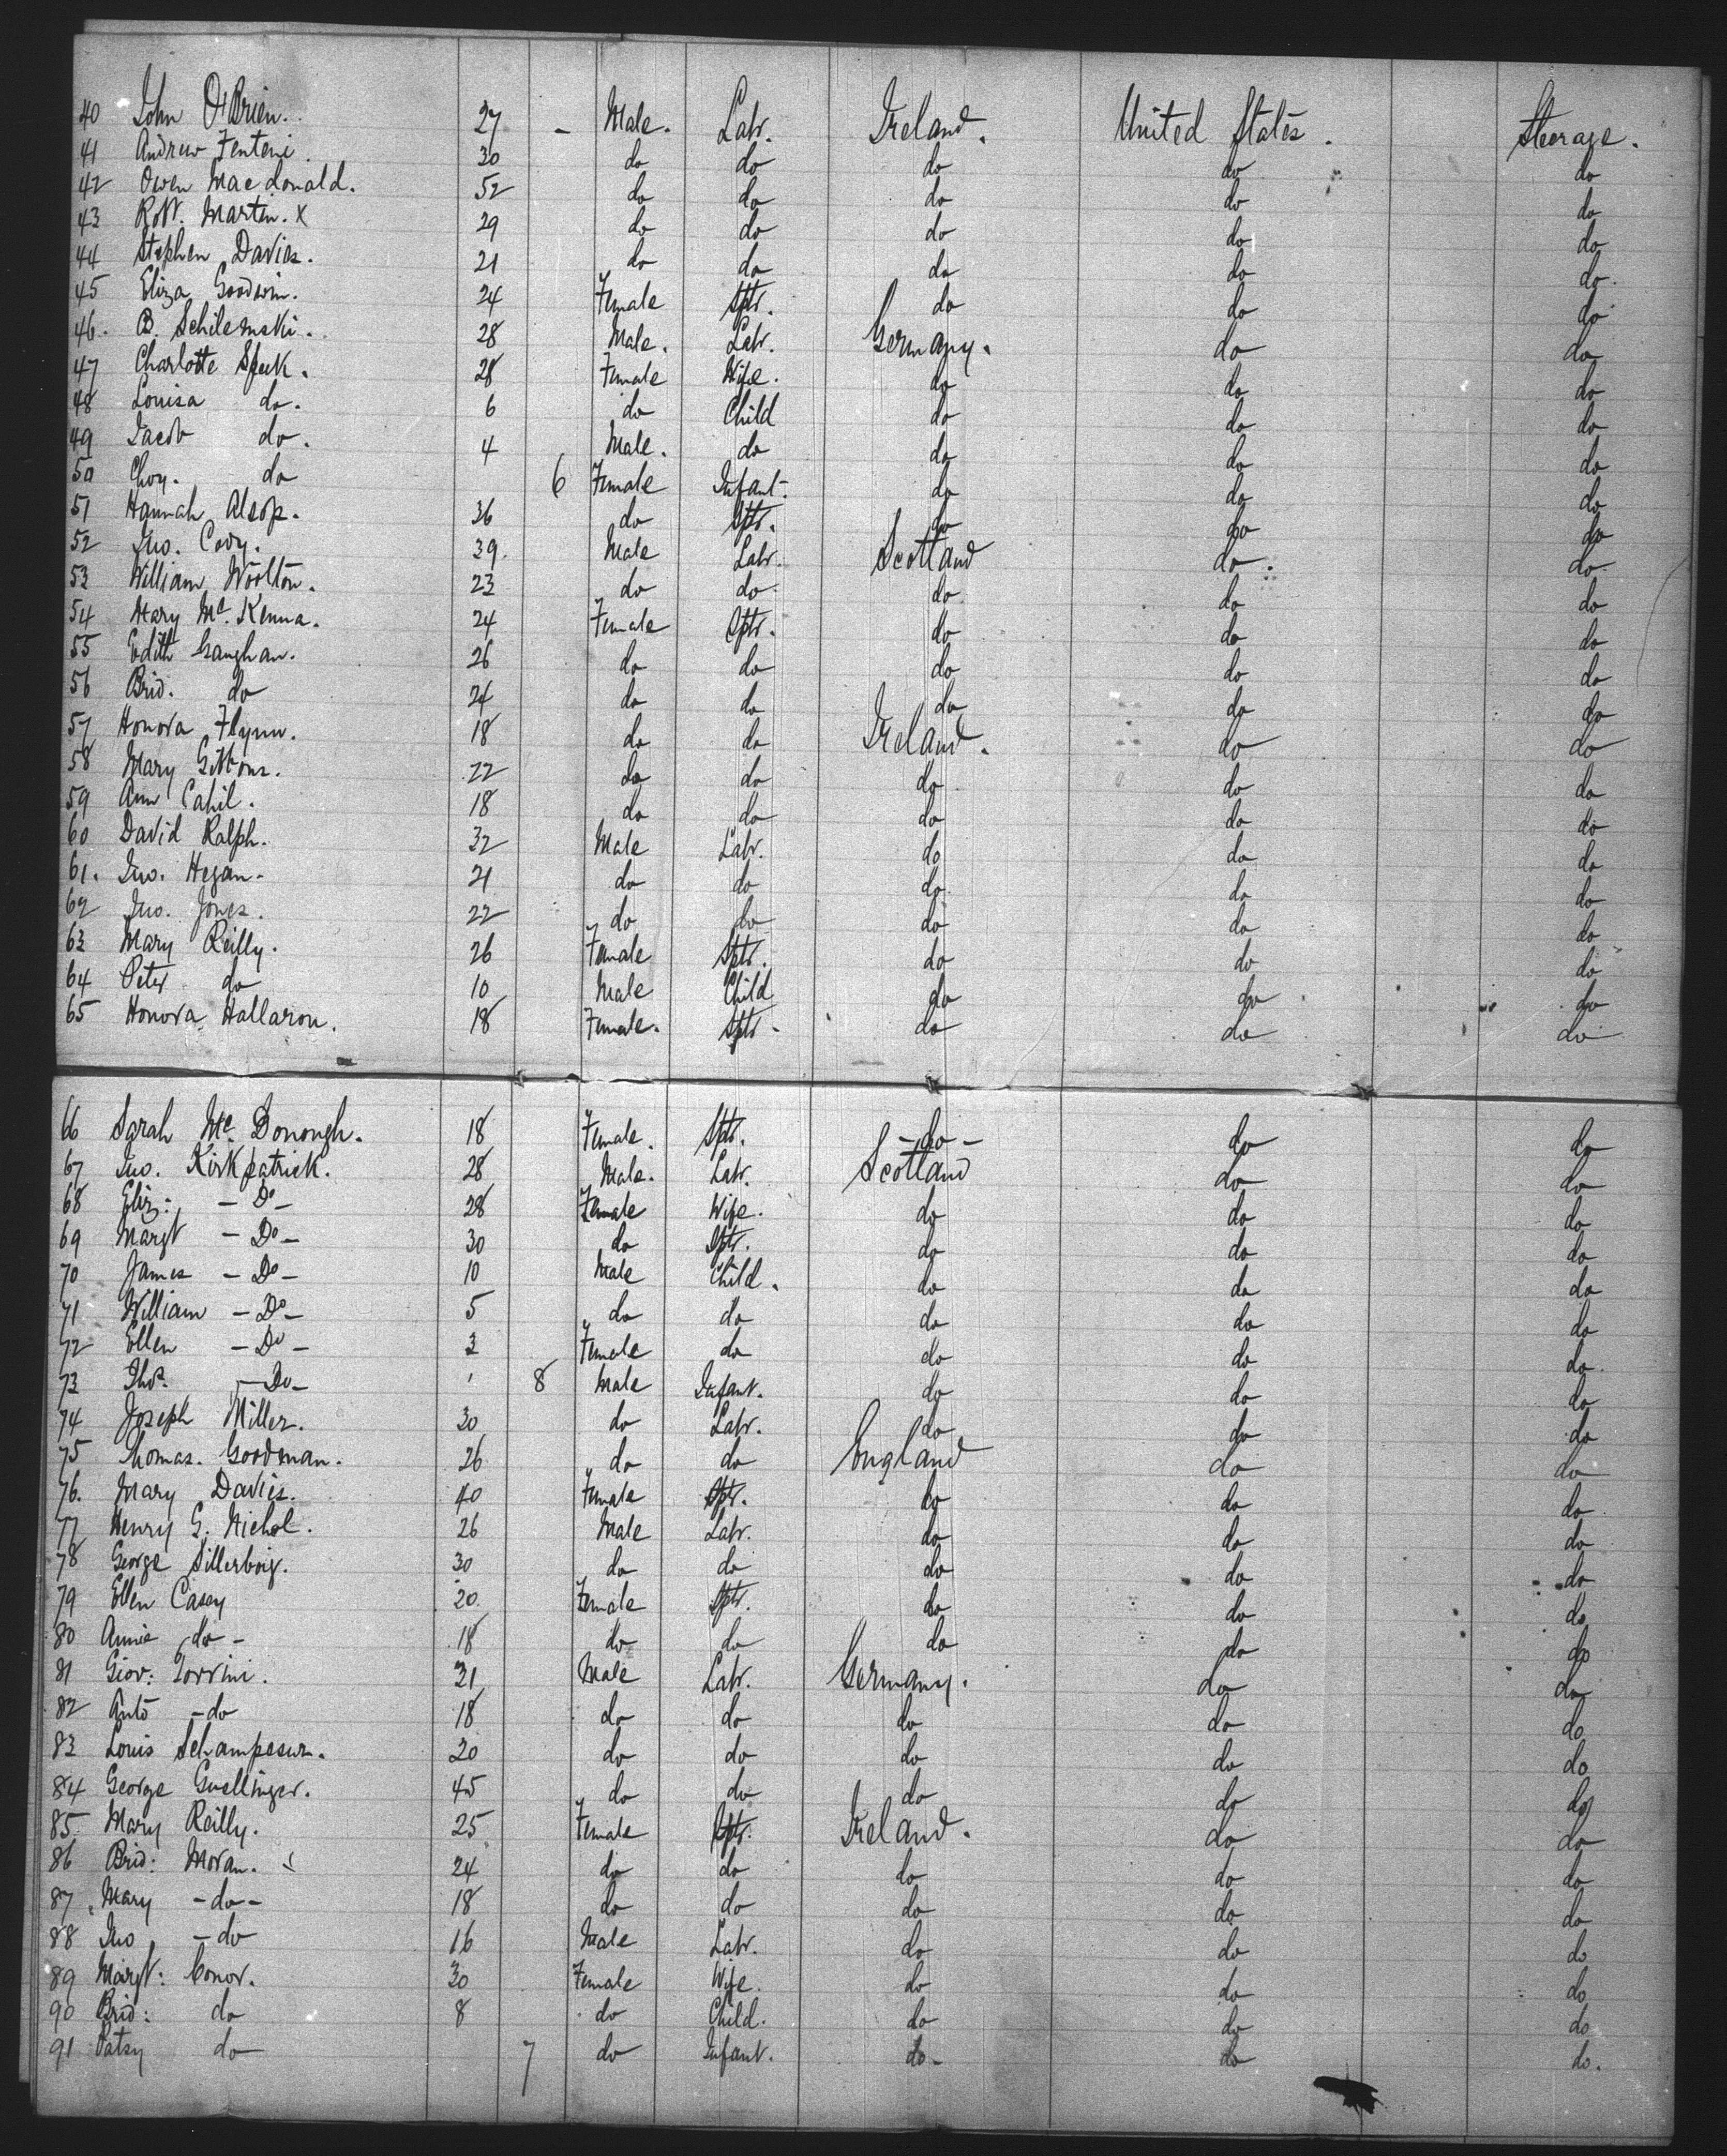 40 John O'Brien. 27 - Male. Labr. Ireland. United States. Steerage.
41 Andrew Fenteni. 30 do do do do do
42 Owen Macdonald. 52 do do do do do
43 Robt. Martin. x 29 do do do do do
44 Stephen Davies. 21 do do do do do.
45 Eliza Goodwin. 24 Female Sptr. do do do
46. B. Schilemski. 28 Male. Labr. Germany. do do
47 Charlotte Speck. 28 Female Wife. do do do
48 Louisa do. 6 do Child do do do
49 Jacob do. 4 Male. do do do do
50 Choy. do 6 Female Infant. do do do
51 Hannah Alsop. 36 do Sptr. do do do
52 Jno. Cody. 39. Male Labr. Scotland do. do.
53 William Woolton. 23 do do do do do
54 Mary Mc. Kenna. 24 Female Sptr. do do do
55 Edith Gaughan. 26 do do do do do
56 Brid. do 24 do do do do do
57 Honora Flynn. 18 do do Ireland. do do
58 Mary Gibbons. 22 do do do do do
59 Ann Cahil. 18 do do do do do
60 David Ralph. 32 Male Labr. do do do
61. Jno. Hegan. 21 do do do. do do
62 Jno. Jones. 22 do do do do do
63 Mary Reilly. 26 Female Sptr. do do do
64 Peter do 10 Male Child do do do
65 Honora Hallaron. 18 Female. Sptr. do do do
66 Sarah Mc. Donough. 18 Female. Sptr. -do- do do
67 Jno. Kirkpatrick. 28 Male. Labr. Scotland do do
68 Eliz: - Do - 28 Female Wife. do do do
69 Margt - Do - 30 do Sptr. do do do
70 James - Do - 10 Male Child. do do do
71 William - Do - 5 do do do do do
72 Ellen - Do - 3 Female do do do do.
73 Thos. - Do - 8 Male Infant. do do do
74 Joseph Miller. 30 do Labr. do do do
75 Thomas. Goodman. 26 do do England do do
76. Mary Davies. 40 Female Sptr. do do do
77 Henry G. Nichol. 26 Male Labr. do do do
78 George 30 do do do do do
79 Ellen Casey 20. Female Sptr. do do do
80 Annie do - 18 do do do do do
81 Giov: Torrini. 21 Male Labr. Germany. do do
82 Anto - do 18 do do do do do
83 Louis 20 do do do do do
84 George Guellinger. 45 do do do do do
85. Mary Reilly. 25 Female Sptr. Ireland. do do
86 Brid: Moran. 24 do do do do do
87 Mary - do - 18 do do do do do
88 Jno - do 16 Male Labr. do do do
89 Margt: Conor. 30 Female Wife. do do do
90 Brid: do 8 do Child. do do do
91 Patsy do 7 do Infant. do - do do.